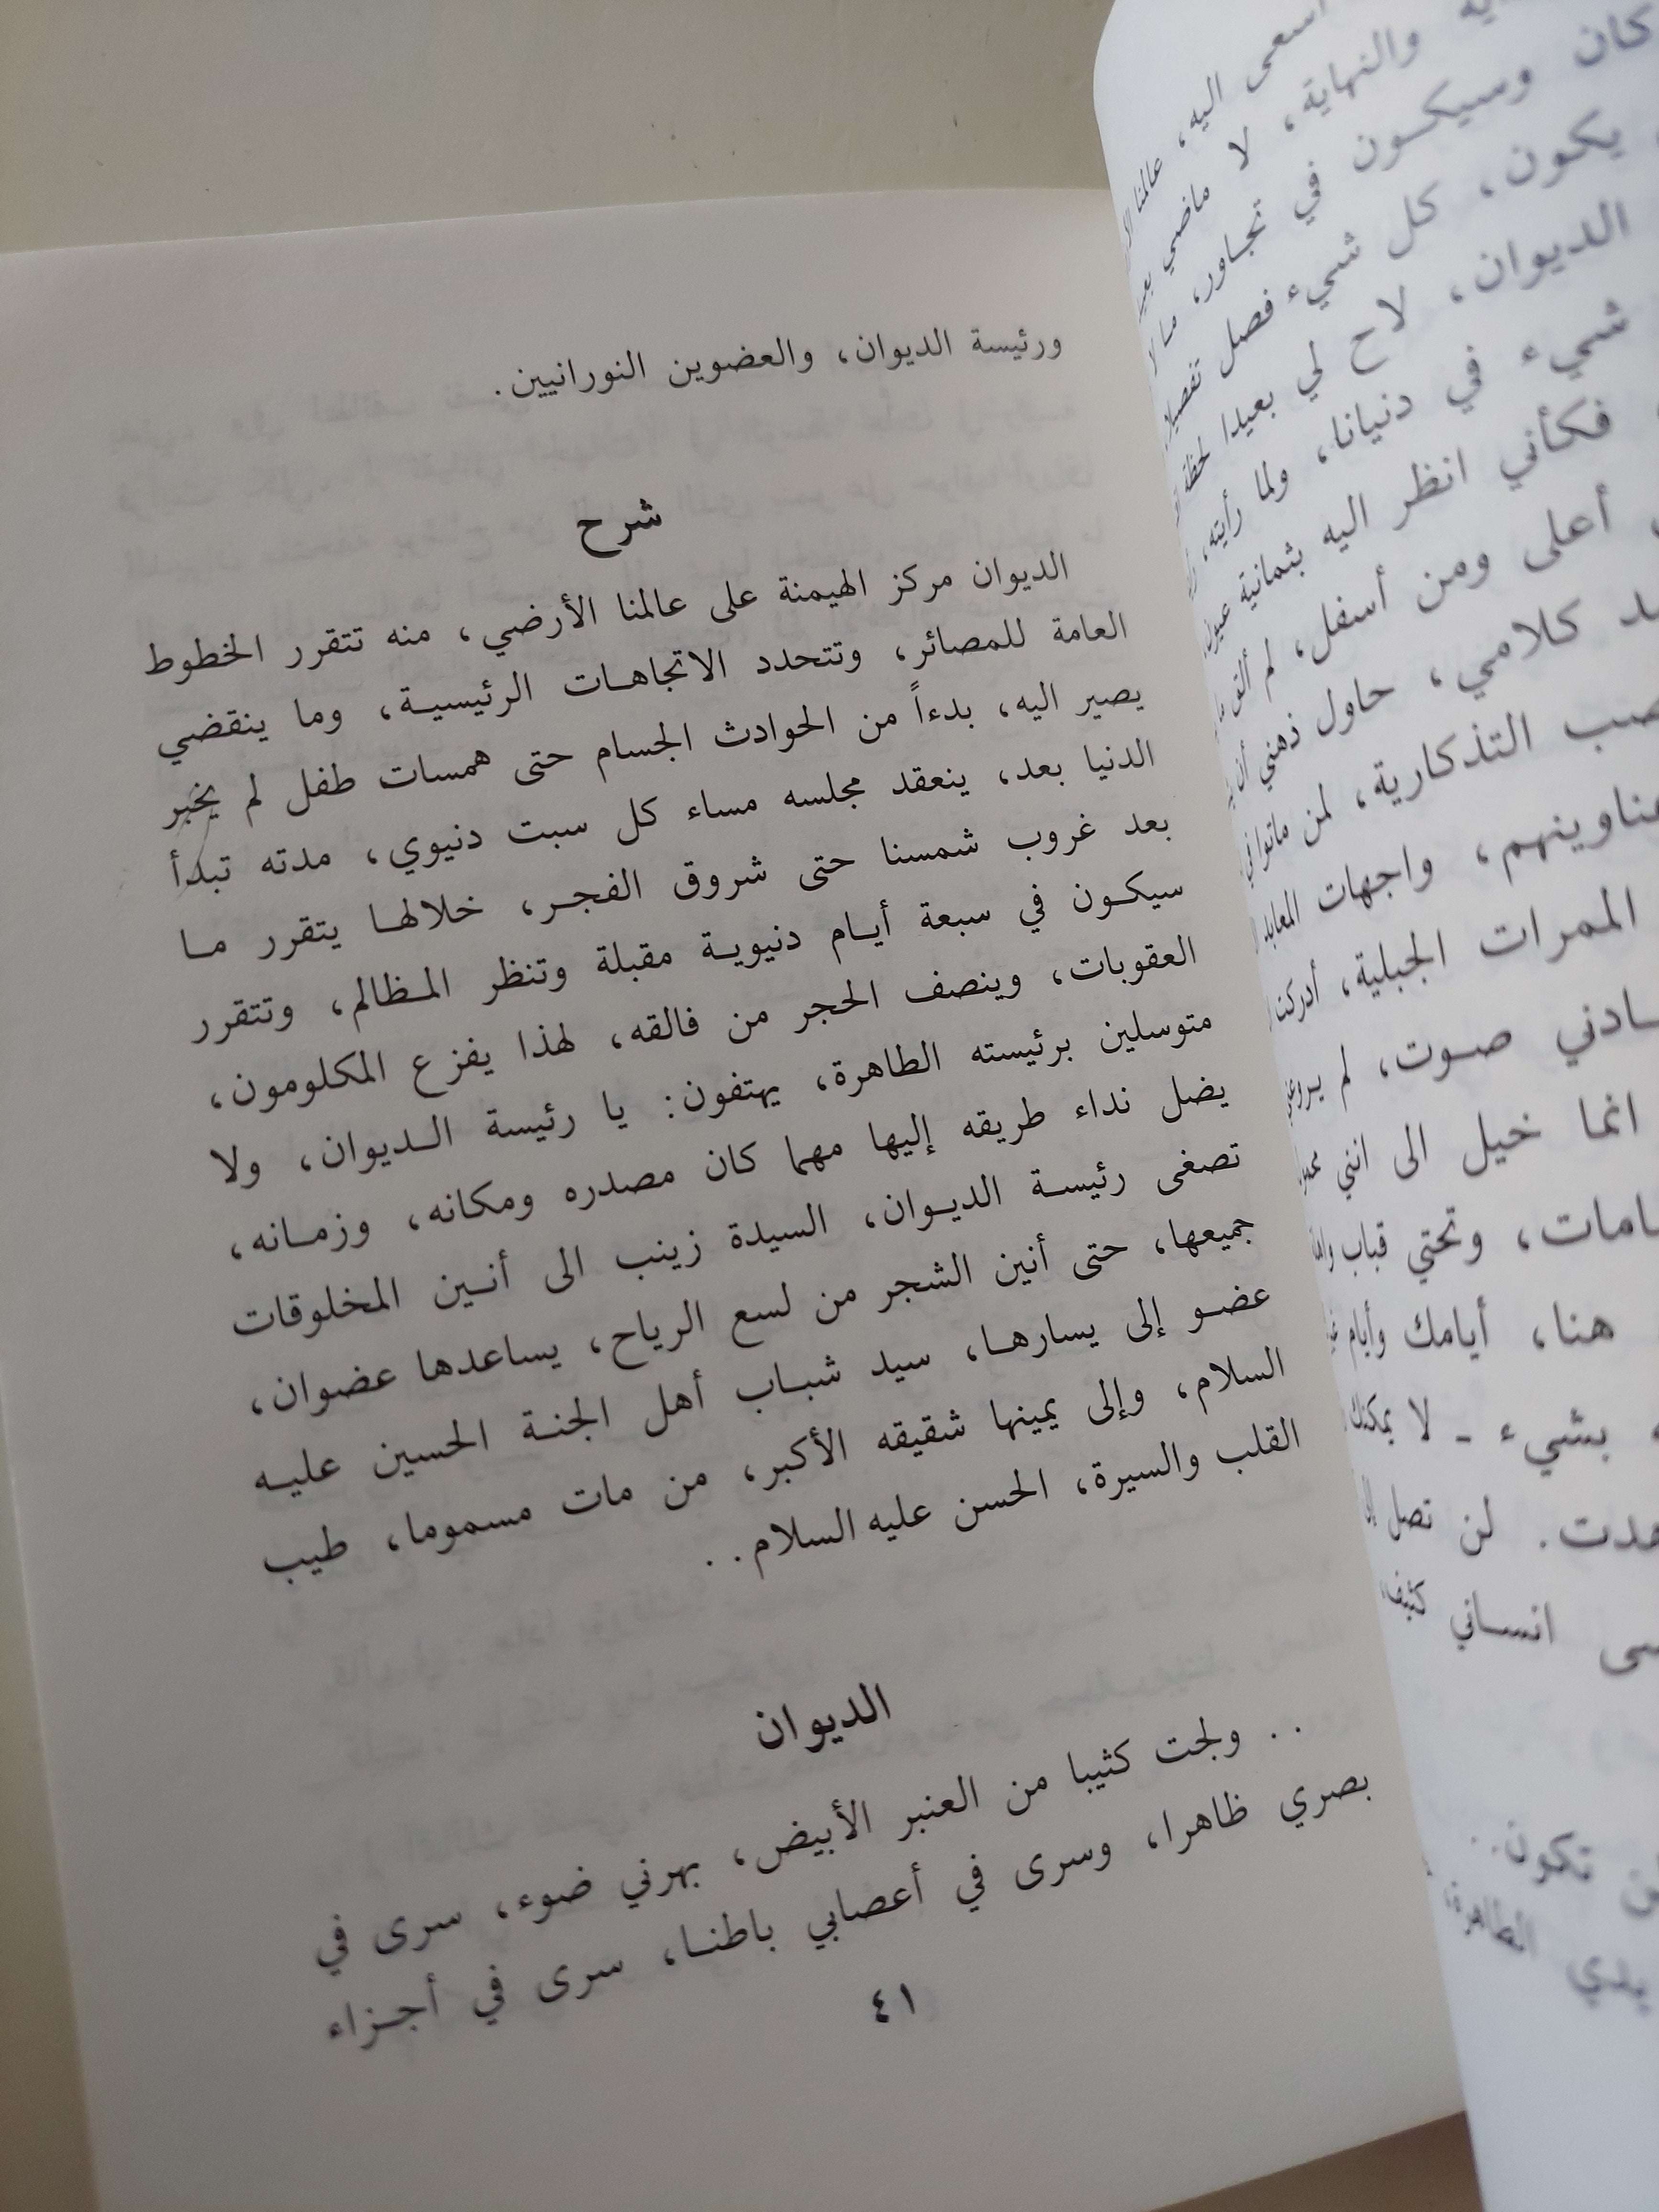 ورئيسة الديوان، والعضوين النورانيين.
شرح
الديوان مركز الهيمنة على عالمنا الأرضي، منه تتقرر الخطوط
العامة للمصائر، وتتحدد الاتجاهات الرئيسية، وما ينقضي
يصير اليه، بدءاً من الحوادث الجسام حتى همسات طفل لم يخبر
الدنيا بعد، ينعقد مجلسه مساء كل سبت دنيوي، مدته تبدأ
بعد غروب شمسنا حتى شروق الفجر، خلالها يتقرر ما
سيكون في سبعة أيام دنيوية مقبلة وتنظر المظالم، وتتقرر
العقوبات، وينصف الحجر من فالقه، لهذا يفزع المكلومون،
متوسلين برئيسته الطاهرة، يهتفون: يا رئيسة الديوان، ولا
يضل نداء طريقه إليها مهما كان مصدره ومكانه، وزمانه،
تصغى رئيسة الديوان، السيدة زينب الى أنين المخلوقات
جميعها، حتى أنين الشجر من لسع الرياح، يساعدها عضوان،
عضو إلى يسارها، سيد شباب أهل الجنة الحسين عليه
السلام، وإلى يمينها شقيقه الأكبر، من مات مسموما، طيب
القلب والسيرة، الحسن عليه السلام..
الديوان
.. ولجت كثيبا من العنبر الأبيض، بهرني ضوء، سرى في
بصري ظاهرا، وسرى في أعصابي باطنا، سرى في أجزاء
٤١
اسعى اليه، عالمنا
والنهاية، لا ماضي
كان وسيكون في تجاور، ما لا
يكون، كل شيء فصل
الديوان، لاح لي بعيدا لحظة
شيء في دنيانا، ولما رأيته،
فكأني انظر اليه بثمانية
أعلى ومن أسفل، لم ألق
كلامي، حاول ذهني أن
التذكارية، لمن ماتوا في
عناوينهم، واجهات المعابد
الممرات الجبلية، أدركنا
صوت، لم
انما خيل الى انني
وتحتي قباب
هنا، أيامك وأيام
بشيء - لا يمكنك
لن تصل
انساني كثيف،
تكون..
يدي الطاهرة،